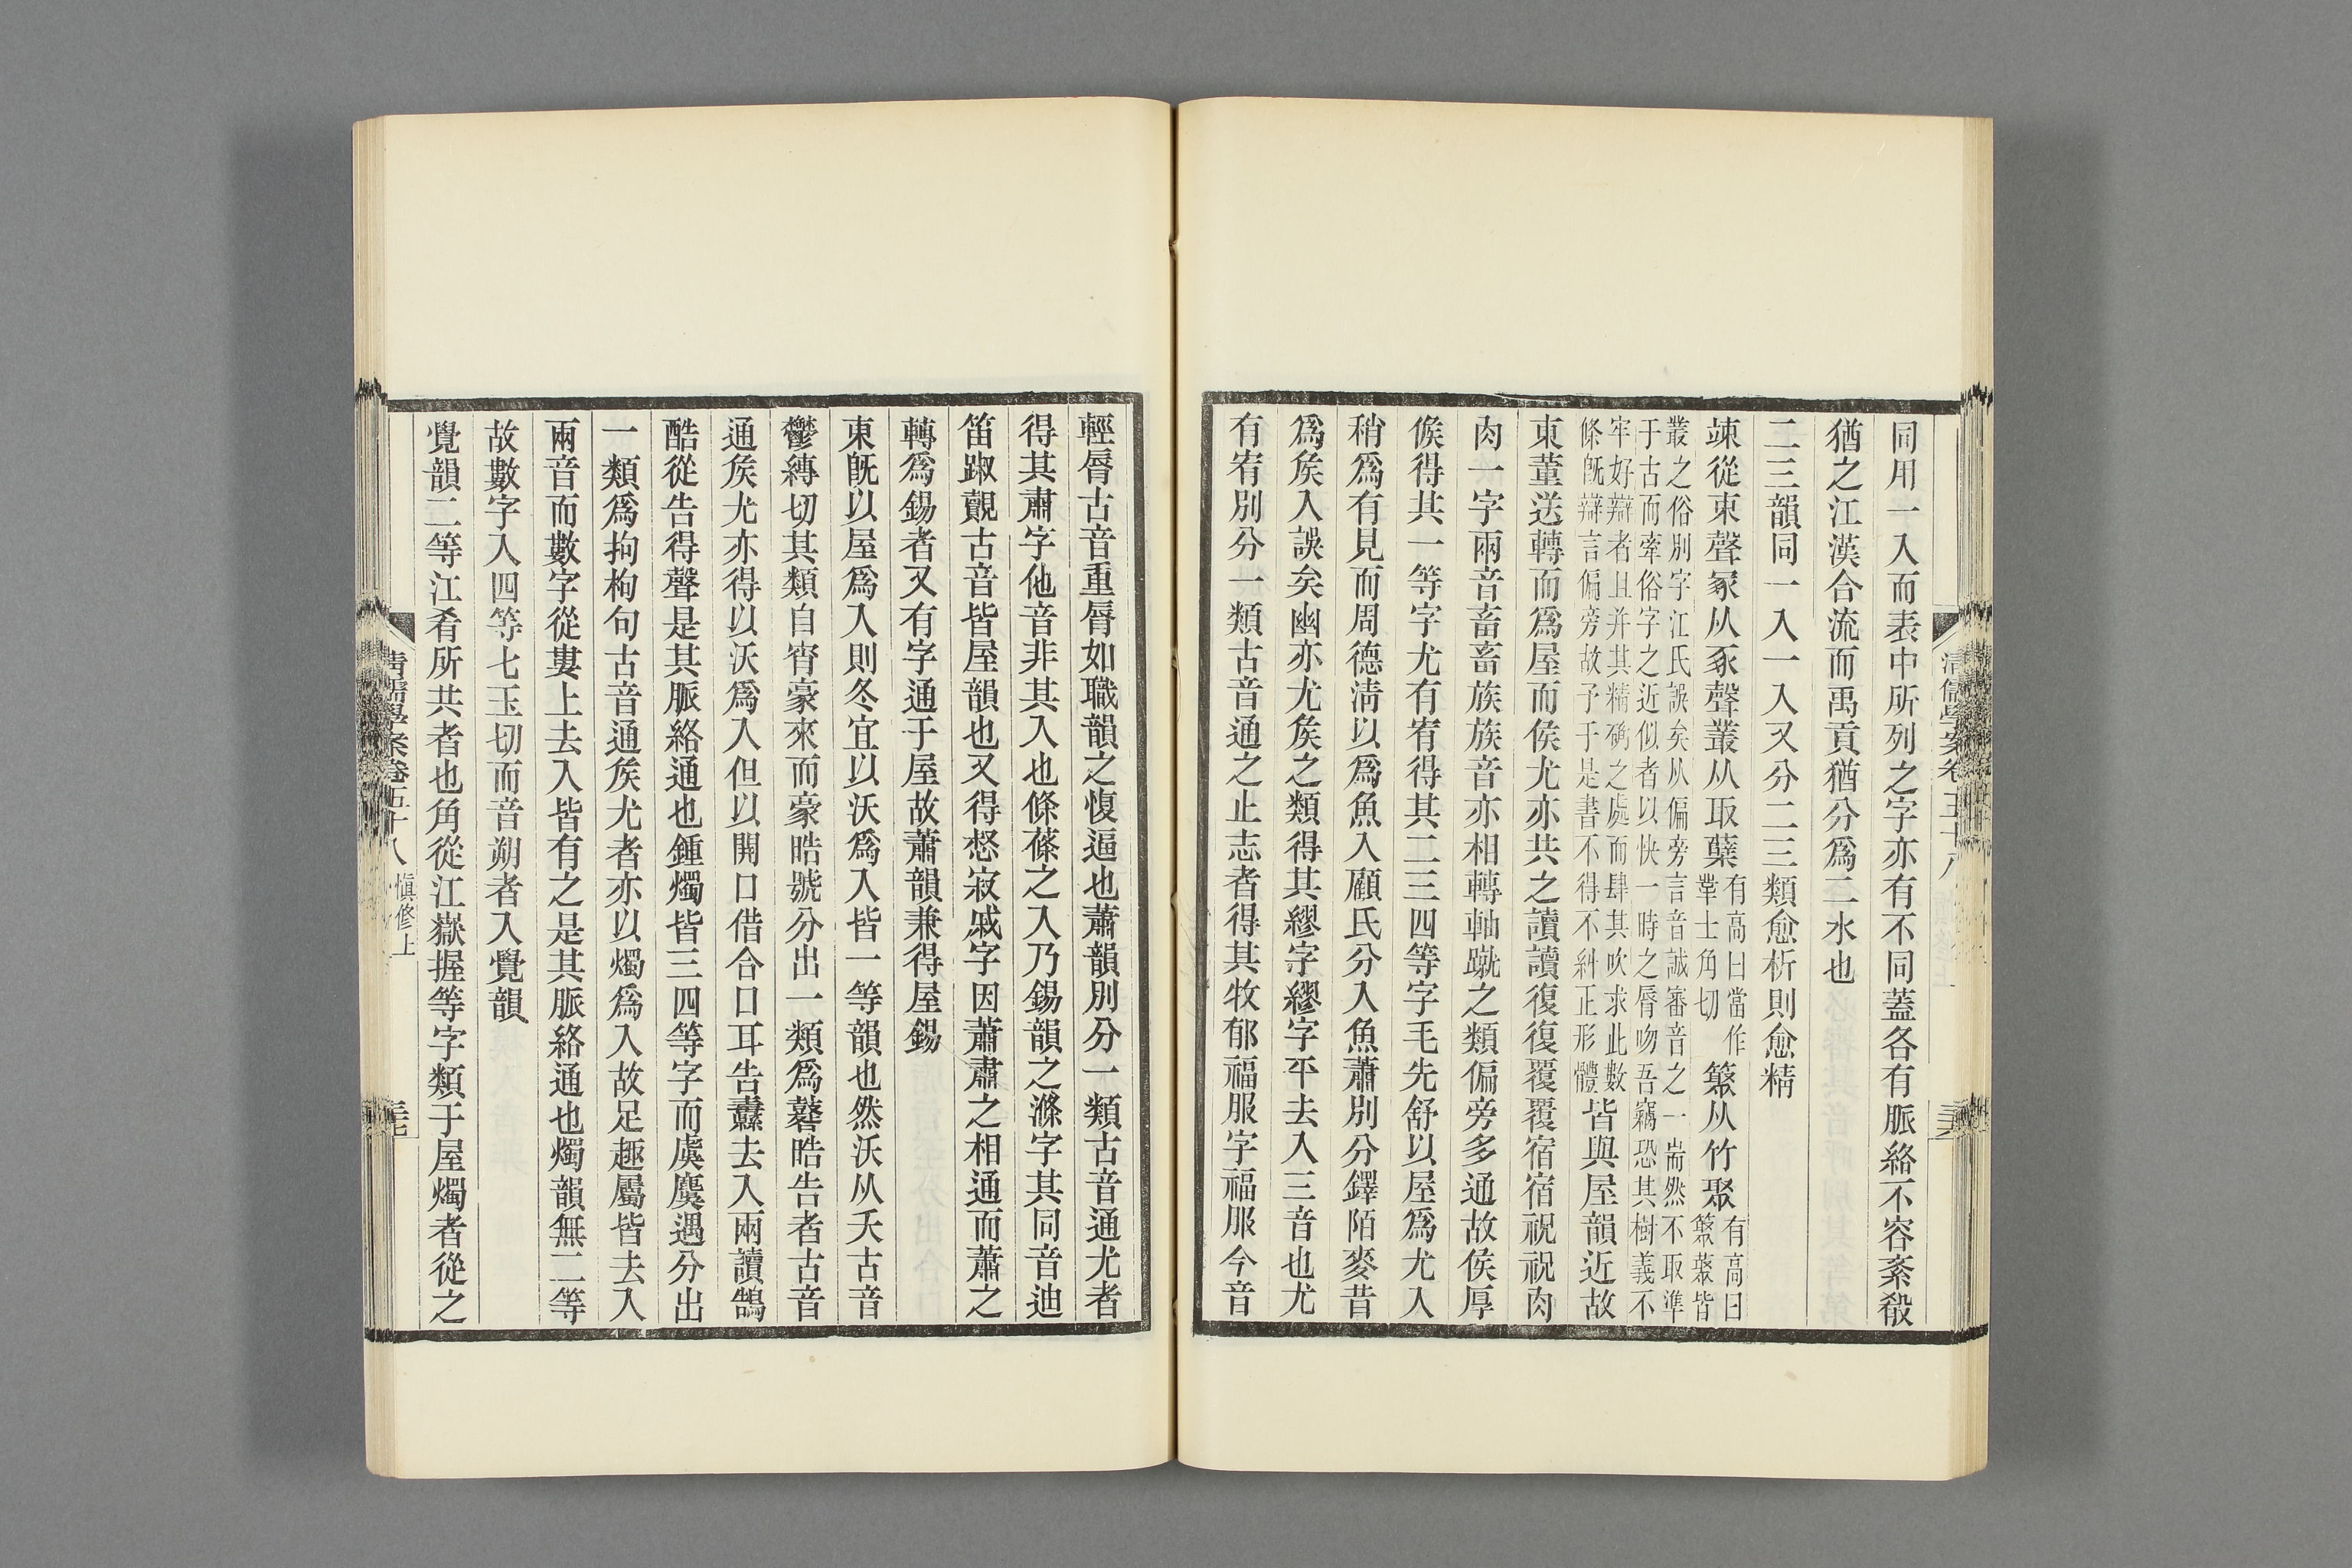 同用一入而表中所列之字亦有不同蓋各有脈絡不容紊殽
猶之江漢合流而禹貢猶分爲二水也
二三韻同一入一入又分二三類愈析則愈精
竦從束聲冢从豕聲叢从取
有高曰當作
丵士角切
从竹聚
有高曰
皆
叢之俗別字江氏誤矣从偏旁言音誠審音之一耑然不取準
于古而牽俗字之近似者以快一時之脣吻吾竊恐其樹義不
牢好辯者且并其精礄之處而肆其吹求此數
條旣辯言偏旁故予于是書不得不糾正形體
皆與屋韻近故
東董送轉而爲屋而侯尤亦共之讀讀復復覆覆宿宿祝祝肉
肉一字兩音畜畜族族音亦相轉軸蹴之類偏旁多通故侯厚
候得其一等字尤有宥得其二三四等字毛先舒以屋爲尤入
稍爲有見而周德淸以爲魚入顧氏分入魚蕭別分鐸陌麥昔
爲矦入誤矣幽亦尤矦之類得其繆字繆字平去入三音也尤
有宥別分一類古音通之止志者得其牧郁福服字福服今音
清儒學案卷五十八
輕脣古音重脣如職韻之愎逼也蕭韻別分一類古音通尤者
得其肅字他音非其入也條蓧之入乃錫韻之滌字其同音迪
笛踧覿古音皆屋韻也又得惄寂戚字因蕭肅之相通而蕭之
轉爲錫者又有字通于屋故蕭韻兼得屋錫
東旣以屋爲入則冬宜以沃爲入皆一等韻也然沃从夭古音
鬱縛切其類自宵豪來而豪晧號分出一類爲鼛晧告者古音
通矦尤亦得以沃爲入但以開口借合口耳告纛去入兩讀鵠
酷從告得聲是其脈絡通也鍾燭皆三四等字而虞麌遇分出
一類爲拘枸句古音通矦尤者亦以燭爲入故足趣屬皆去入
兩音而數字從婁上去入皆有之是其脈絡通也燭韻無二等
故數字入四等七玉切而音朔者入覺韻
覺韻二等江肴所共者也角從江嶽握等字類于屋燭者從之
清儒學案卷五十八 愼修上 三七